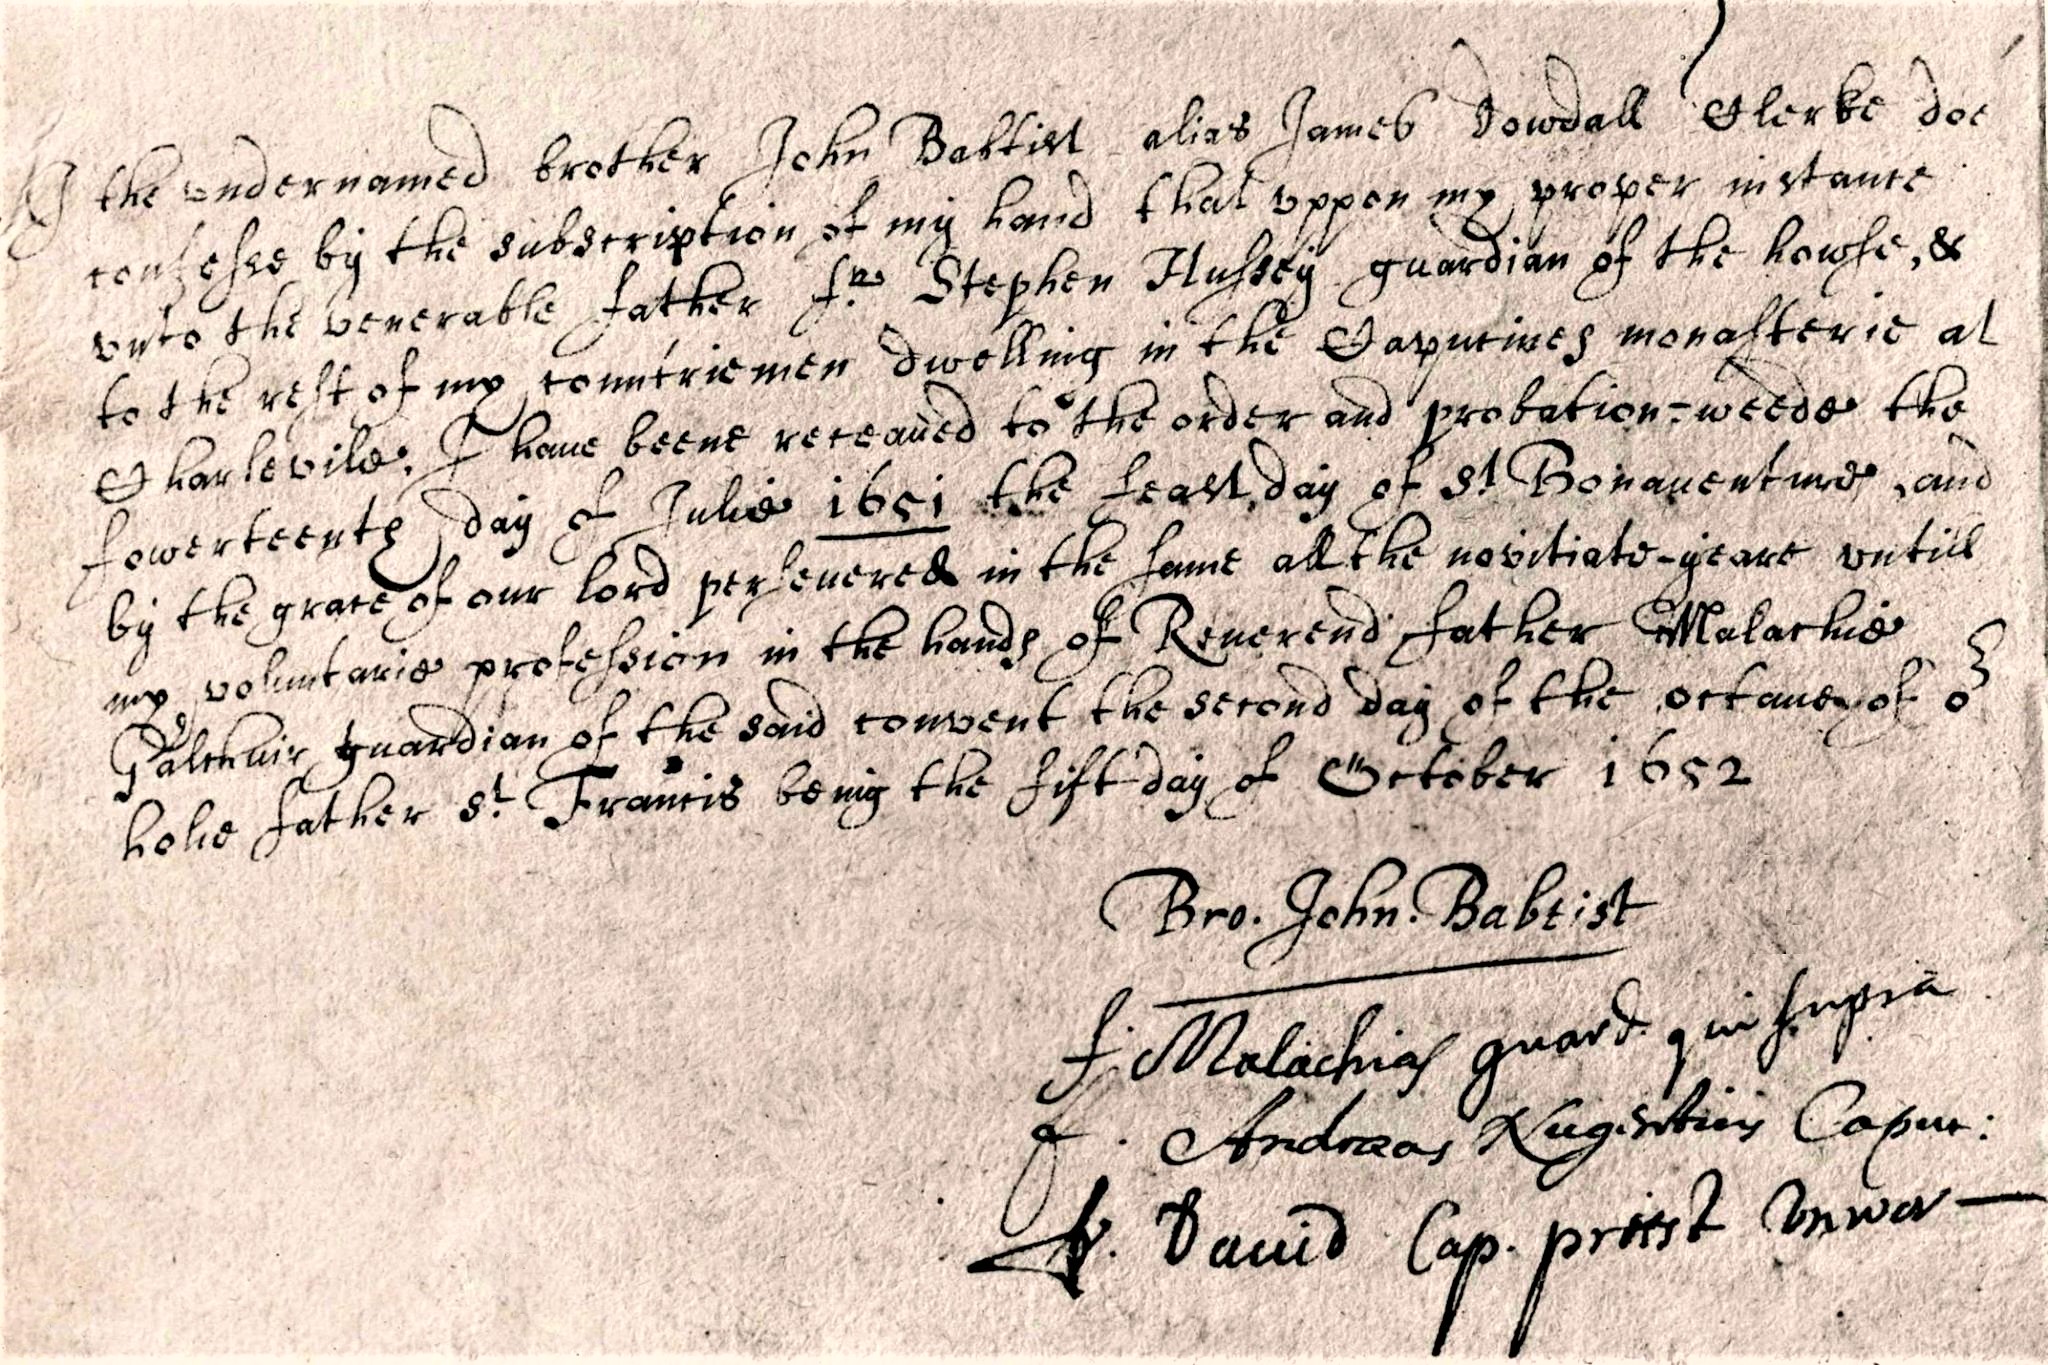 I the undernamed brother John Babtist alias James Dowdall Clerke doe
confesse by the subscription of my hand that uppon my proper instance
unto the venerable father fr. Stephen Hussey guardian of the howse, &
to the rest of my countriemen dwelling in the Capucines monasterie at
Charlevile, I haue beene receaued to the order and probation-weede the
fowerteenth day of Julie 1651 the feast day of St Bonauenture, and
by the grace of our lord perseuered in the same all the novitiate-yeare untill
my voluntarie profession in the hands of Reuerend father Malachie
guardian of the said convent the second day of the octaue of or
holie father St Francis being the fift day of October 1652
Bro. John. Babtist
f. Malachias guard. qui supra
f. Andraeas Nugentius Capuc:
fr. Dauid Cap. priest